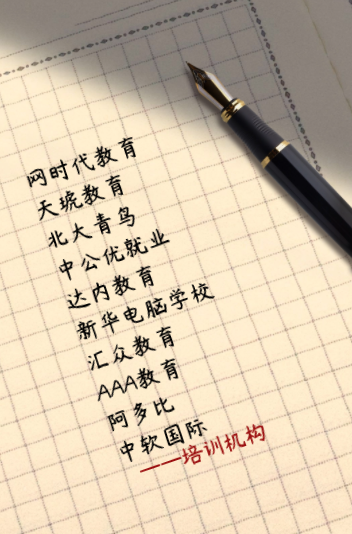 网时代教育
天琥教育
北大青鸟
中公优就业
达内教育
新华电脑学校
汇众教育
AAA教育
阿多比
中软国际
——培训机构